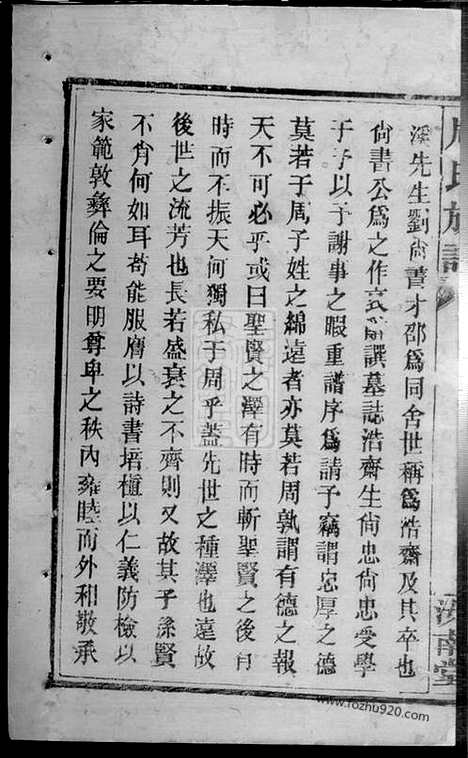 周氏族譜
溪先生劉尚書才邵爲同舍世稱爲浩齋及其卒也
尚書公爲之作哀辭譔墓誌浩齋生尚忠尚忠受學
于予以予謝事之暇重譜序爲請予竊謂忠厚之德
莫若于周子姓之綿遠者亦莫若周孰謂有德之報
天不可必乎或曰聖賢之澤有時而斬聖賢之後有
時而不振天何獨私于周乎蓋先世之種澤也遠故
後世之流芳也長若盛衰之不齊則又故其子孫賢
不肖何如耳苟能服膺以詩書培植以仁義防檢以
家範敦彝倫之要明尊卑之秩內雍睦而外和敬承
南堂
www.rozhu920.com